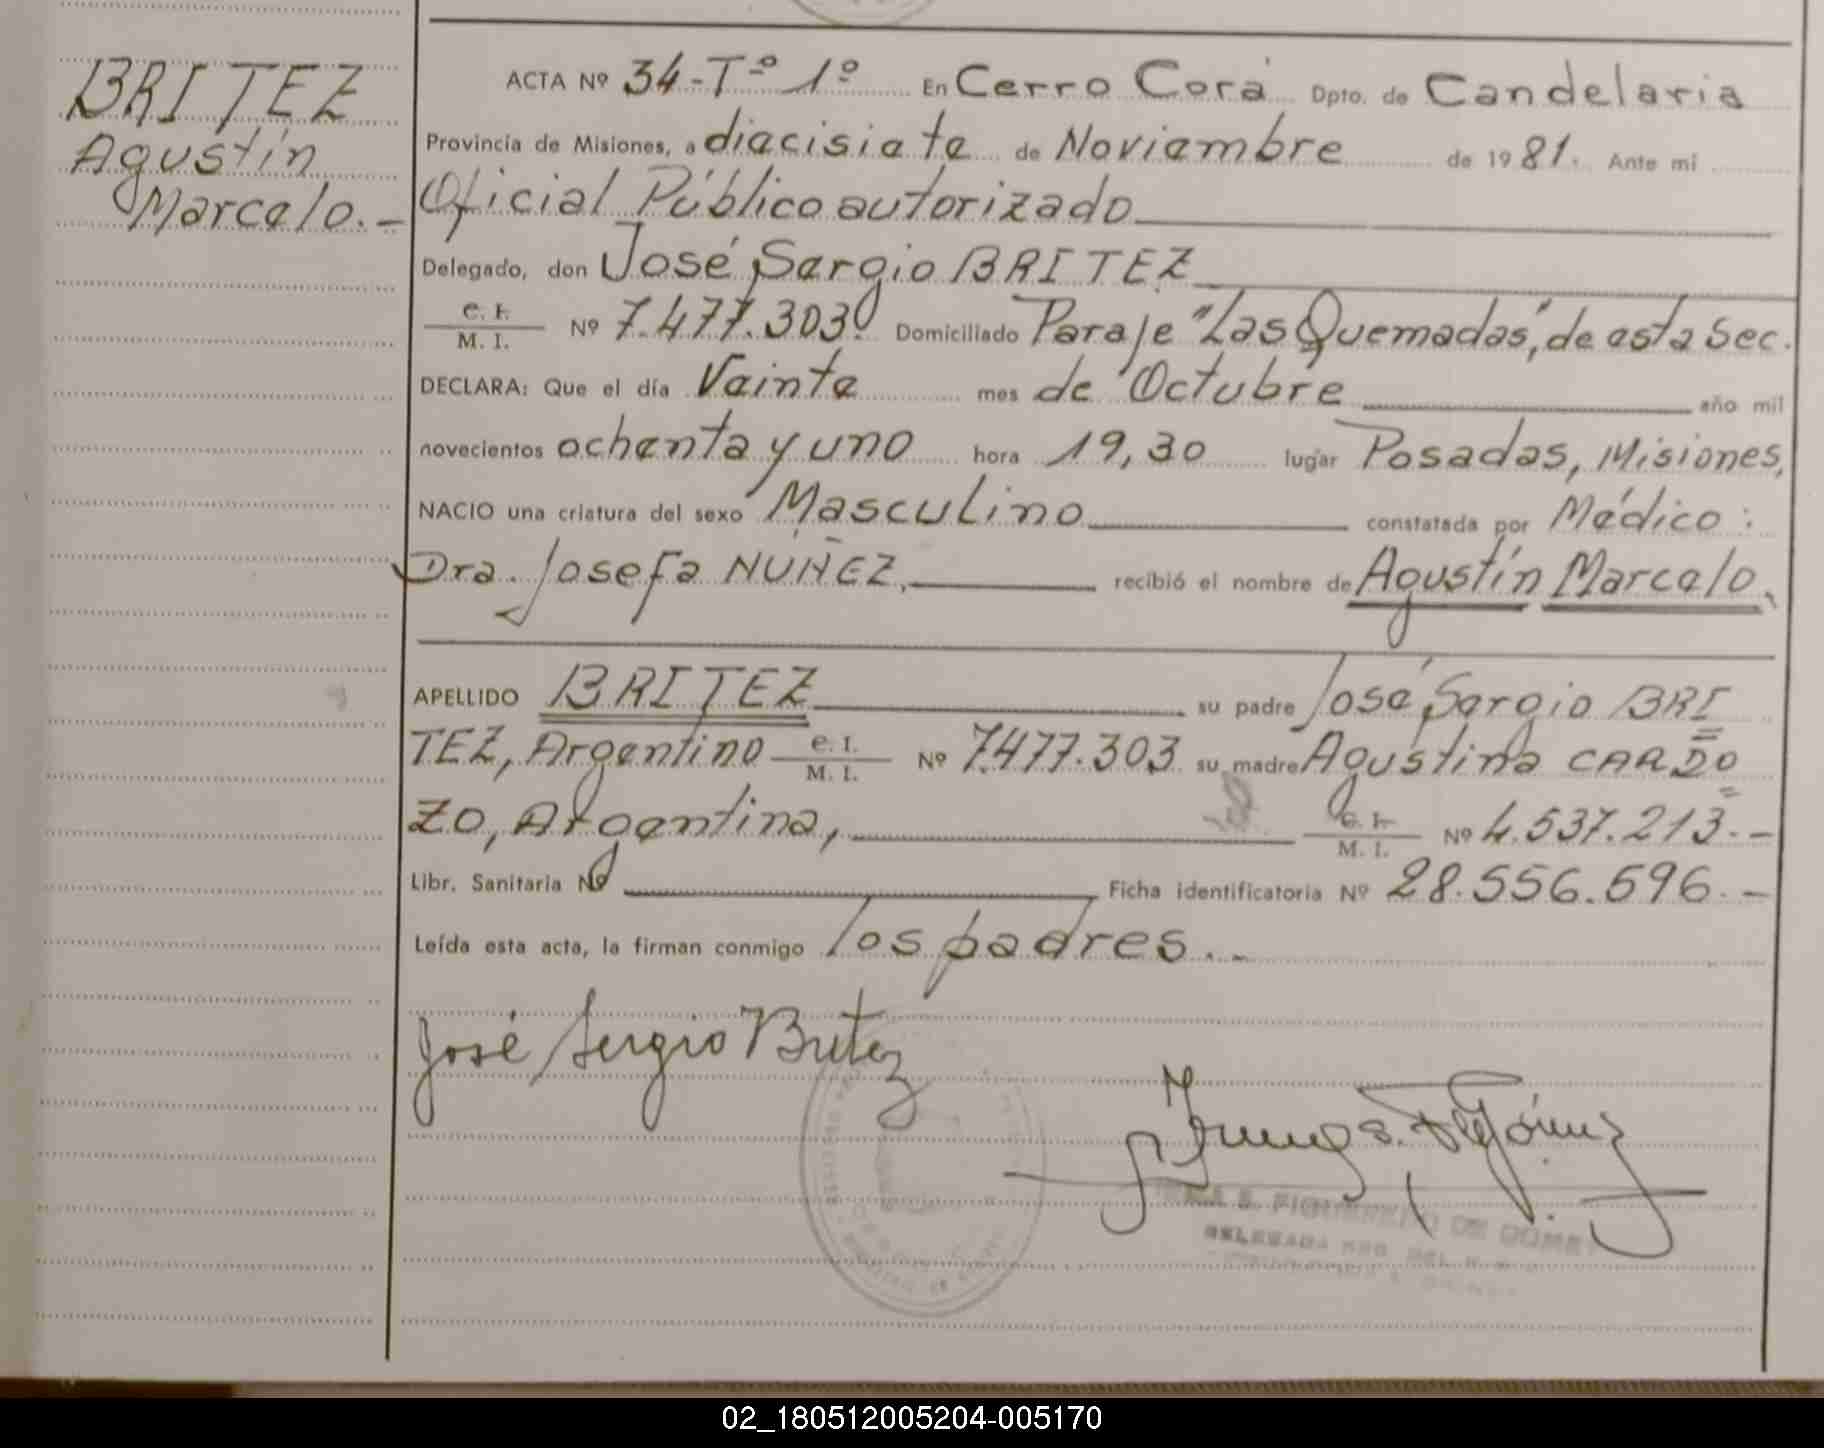 BRITEZ
Agustín
Marcelo.-
ACTA Nº 34-Tº 1º En Cerro Corá Dpto. de Candelaria
Provincia de Misiones, a diecisiete de Noviembre de 1981. Ante mi
Oficial Público autorizado
Delegado, don José Sergio BRITEZ
C. I.
M. I. Nº 7.477.303 Domiciliado Paraje "Las Quemadas", de esta Sec.
DECLARA: Que el día Veinte mes de Octubre año mil
novecientos ochenta y uno hora 19,30 lugar Posadas, Misiones,
NACIO una criatura del sexo Masculino constatada por Médico:
Dra. Josefa NUÑEZ, recibió el nombre de Agustín Marcelo,
APELLIDO BRITEZ su padre José Sergio BRI
TEZ, Argentino C. I.
M. I. Nº 7.477.303 su madre Agustina CARDO
ZO, Argentina, C. I.
M. I. Nº 4.537.213.-
Libr. Sanitaria Nº Ficha identificatoria Nº 28.556.596.-
Leída esta acta, la firman conmigo los padres.-
José Sergio Britez
S. FIGUEREDO DE GOMEZ
DELEGADA
02_180512005204-005170